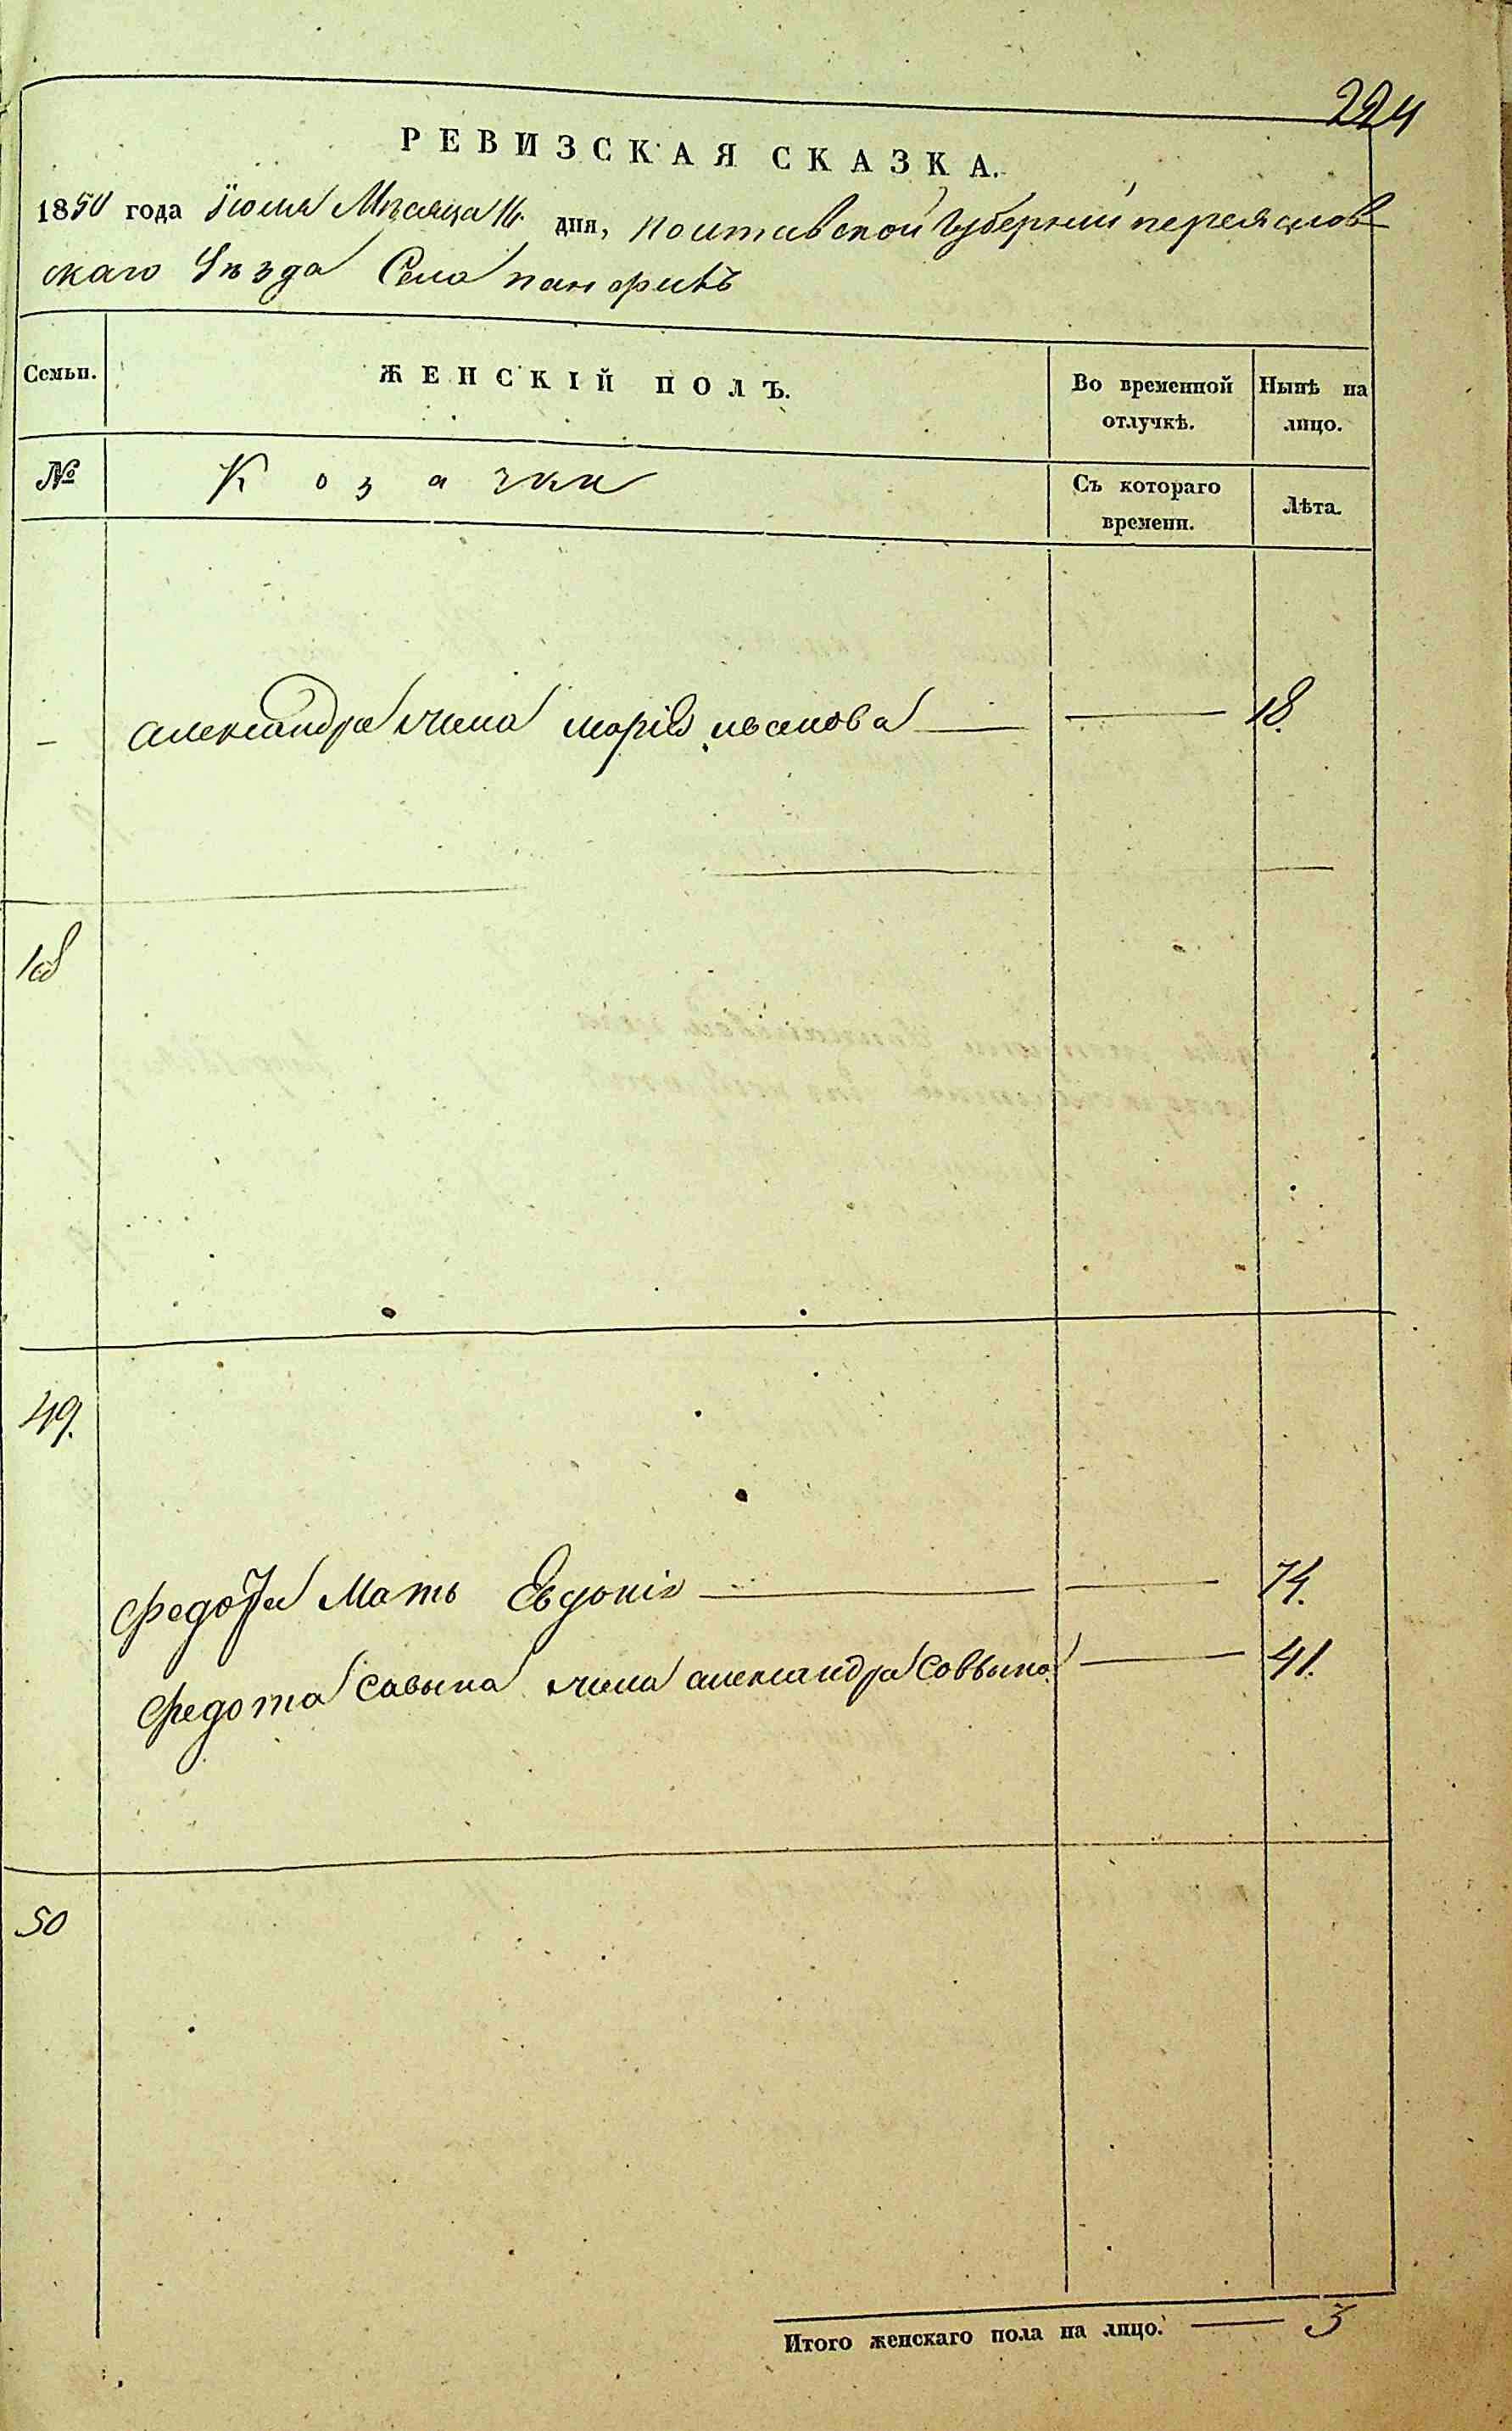 224
РЕВИЗСКАЯ СКАЗКА.
1850 года Іюля Мѣсяца 16 дня, Полтавской Губерніи переяслов
скаго Уѣзда Села панфилъ
Семьи. ЖЕНСКІЙ ПОЛЪ. Во временной отлучкѣ. Нынѣ на лицо.
№ Козачки Съ котораго времени. Лѣта.
александра жена марія 18.
49.
Федота Мать Евдокія 74.
Федота жена александра 41.
50
Итого женскаго пола на лицо. 3